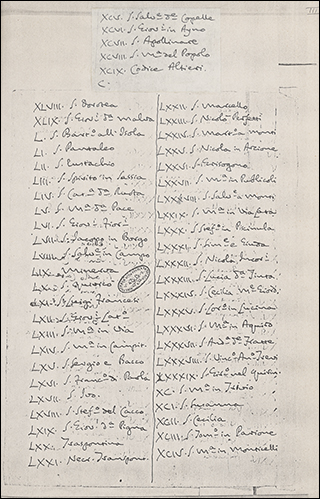 XCV. S. Salv.re d.e Copelle
XCVI. S. Giov.i in Ayno
XCVII. S. Apollinare
XCVIII. S. M.a del Popolo
XCIX. Codice Altieri.
C.
XLVIII. S. Dorotea
XLIX. S. Giov.i d. Malva
L. S. Bart.o all'Isola
LI. S. Pantaleo
LII. S. Eustachio
LIII. S. Spirito in Sassia
LIV. S. Cat.a d.a Ruota
LV. S. M.a d.a Pace
LVI. S. Giov.i Fior.
LVII. S. Jacopo in Borgo
LVIII. S. Salv.re in Campo
LIX. Minerva
LX. S. Quirico
LXI. S. Luigi Francesi
LXII. S. Giov.i Lat.o
LXIII. S. M.a in Via
LXIV. S. M.a in Campit.
LXV. S. Sergio e Bacco
LXVI. S. Franc.o d. Paola
LXVII. S. Ivo.
LXVIII. S. Stef.o del Cacco
LXIX. S. Giov.i d. Pigna
LXX. Traspontina
LXXI. Necr. Transpono.
LXXII. S. Marcello
LXXIII. S. Nicolò Perfetti
LXXIV. S. Mart.o a monti
LXXV. S. Nicola in Arcione
LXXVI. S. Grisogono
LXXVII. S. M.a in Publicoli
LXXVIII. S. Salv.re a monti
LXXIX. S. M.a in Via Lata
LXXX. S. Stef.o in Piscinula
LXXXI. S. Sim.e e Giuda
LXXXII. S. Nicolò Incor.
LXXXIII. S. Lucia d.a Tinta
LXXXIV. S. Cecilia M.e Giord.
LXXXV. S. Lor.o in Lucina
LXXXVI. S. M.a in Aquiro
LXXXVII. S. And.a d.e Fratte
LXXXVIII. S. Vinc.o Anas. Trevi
LXXXIX. S. Est. nel Quirin.
XC. S. M.a in Iterio
XCI. S. Susanna
XCII. S. Cecilia
XCIII. S. Tom.o in Parione
XCIV. S. M.a in Monticelli